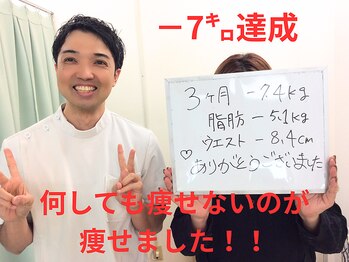 －7㌔達成
3ヶ月 -7.4kg
脂肪 -5.1kg
ウエスト -8.4cm
♡ありがとうございました
何しても痩せないのが
痩せました！！